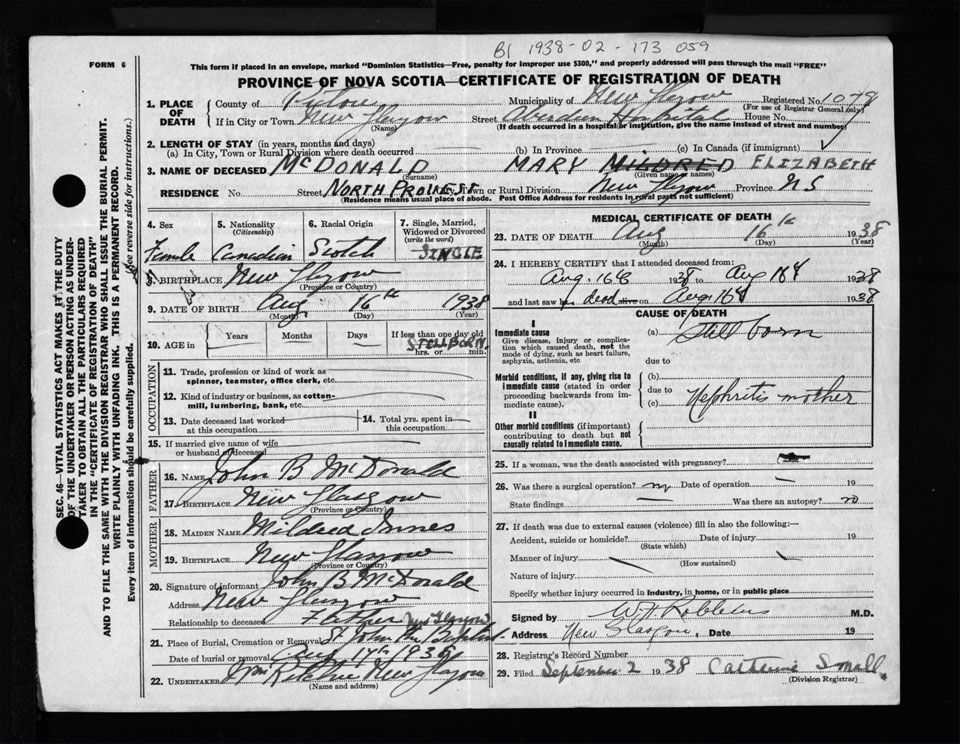 B1 1938-02-173 059
FORM 6
This form if placed in an envelope, marked "Dominion Statistics—Free, penalty for improper use $300," and properly addressed will pass through the mail "FREE"
PROVINCE OF NOVA SCOTIA—CERTIFICATE OF REGISTRATION OF DEATH
1. PLACE OF DEATH County of Pictou Municipality of New Glasgow Registered No. 1079
(For use of Registrar General only)
If in City or Town New Glasgow Street Aberdeen Hospital House No.
(Name) (If death occurred in a hospital or institution, give the name instead of street and number)
2. LENGTH OF STAY (in years, months and days)
(a) In City, Town or Rural Division where death occurred (b) In Province (c) In Canada (if immigrant)
3. NAME OF DECEASED McDONALD MARY MILDRED ELIZABETH
(Surname) (Given name or names)
RESIDENCE No. Street NORTH PROVOST City, Town or Rural Division New Glasgow Province NS
(Residence means usual place of abode. Post Office Address for residents in rural parts not sufficient)
4. Sex 5. Nationality 6. Racial Origin 7. Single, Married,
(Citizenship) Widowed or Divorced
(write the word)
Female Canadian Scotch SINGLE
8. BIRTHPLACE New Glasgow
(Province or Country)
9. DATE OF BIRTH Aug 16th 1938
(Month) (Day) (Year)
10. AGE in Years Months Days If less than one day old
STILLBORN
hrs. or min.
OCCUPATION
11. Trade, profession or kind of work as
spinner, teamster, office clerk, etc.
12. Kind of industry or business, as cotton-
mill, lumbering, bank, etc.
13. Date deceased last worked 14. Total yrs. spent in
at this occupation this occupation
15. If married give name of wife
or husband of deceased
FATHER
16. NAME John B McDonald
17. BIRTHPLACE New Glasgow
(Province or Country)
MOTHER
18. MAIDEN NAME Mildred Innes
19. BIRTHPLACE New Glasgow
(Province or Country)
20. Signature of informant John B McDonald
Address New Glasgow
Relationship to deceased Father New Glasgow
21. Place of Burial, Cremation or Removal St John the Baptist
Date of burial or removal Aug 17th 1938
22. UNDERTAKER New Glasgow
(Name and address)
MEDICAL CERTIFICATE OF DEATH
23. DATE OF DEATH Aug 16th 1938
(Month) (Day) (Year)
24. I HEREBY CERTIFY that I attended deceased from:
Aug. 16th 1938 to Aug 16th 1938
and last saw h dead alive on Aug. 16th 1938
CAUSE OF DEATH
I
Immediate cause (a) Still born
Give disease, injury or complica-
tion which caused death, not the
mode of dying, such as heart failure,
asphyxia, asthenia, etc. due to
Morbid conditions, if any, giving rise to (b)
immediate cause (stated in order due to
proceeding backwards from im- (c) Nephritis mother
mediate cause).
II
Other morbid conditions (if important)
contributing to death but not
causally related to immediate cause.
25. If a woman, was the death associated with pregnancy?
26. Was there a surgical operation? no Date of operation 19
State findings Was there an autopsy? no
27. If death was due to external causes (violence) fill in also the following:—
Accident, suicide or homicide? Date of injury 19
(State which)
Manner of injury
(How sustained)
Nature of injury
Specify whether injury occurred in industry, in home, or in public place
Signed by M.D.
Address New Glasgow, Date 19
28. Registrar's Record Number
29. Filed September 2 1938 Catherine Small
(Division Registrar)
SEC. 46—VITAL STATISTICS ACT MAKES IT THE DUTY
OF THE UNDERTAKER OR PERSON ACTING AS UNDER-
TAKER TO OBTAIN ALL THE PARTICULARS REQUIRED
IN THE "CERTIFICATE OF REGISTRATION OF DEATH"
AND TO FILE THE SAME WITH THE DIVISION REGISTRAR WHO SHALL ISSUE THE BURIAL PERMIT.
WRITE PLAINLY WITH UNFADING INK. THIS IS A PERMANENT RECORD.
Every item of information should be carefully supplied. (See reverse side for instructions.)